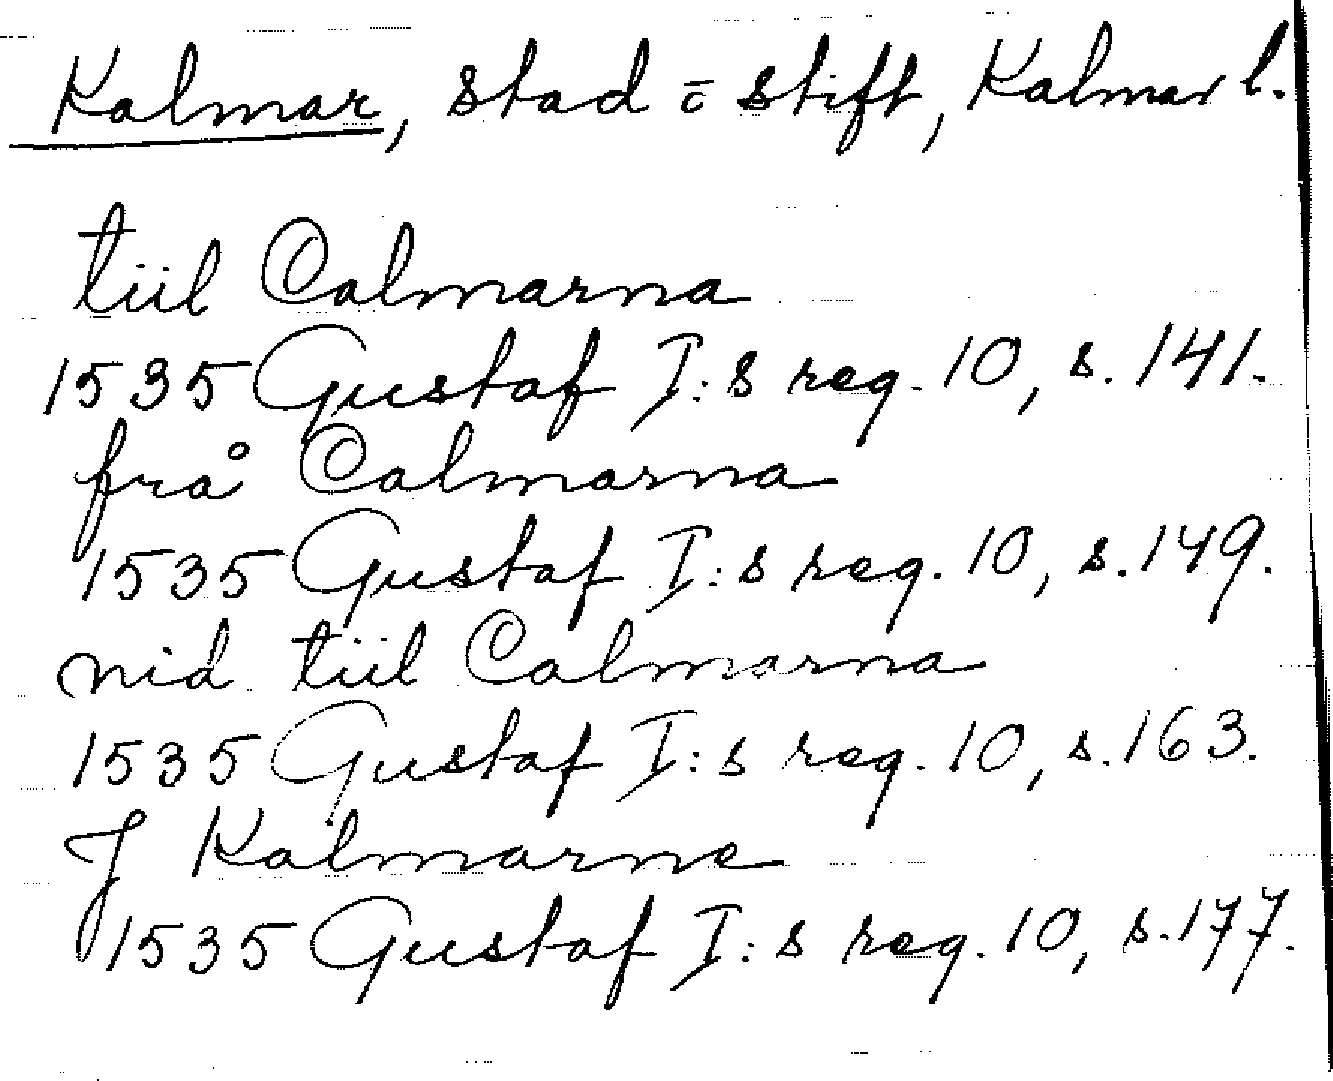 Kalmar, stad o stift, Kalmar l.
tiil Calmarna
1535 Gustaf I:s reg. 10, s. 141.
frå Calmarna
1535 Gustaf I:s reg. 10, s. 149.
nid tiil Calmarna
1535 Gustaf I:s reg. 10, s. 163.
J Kalmarne
1535 Gustaf I:s reg. 10, s. 177.